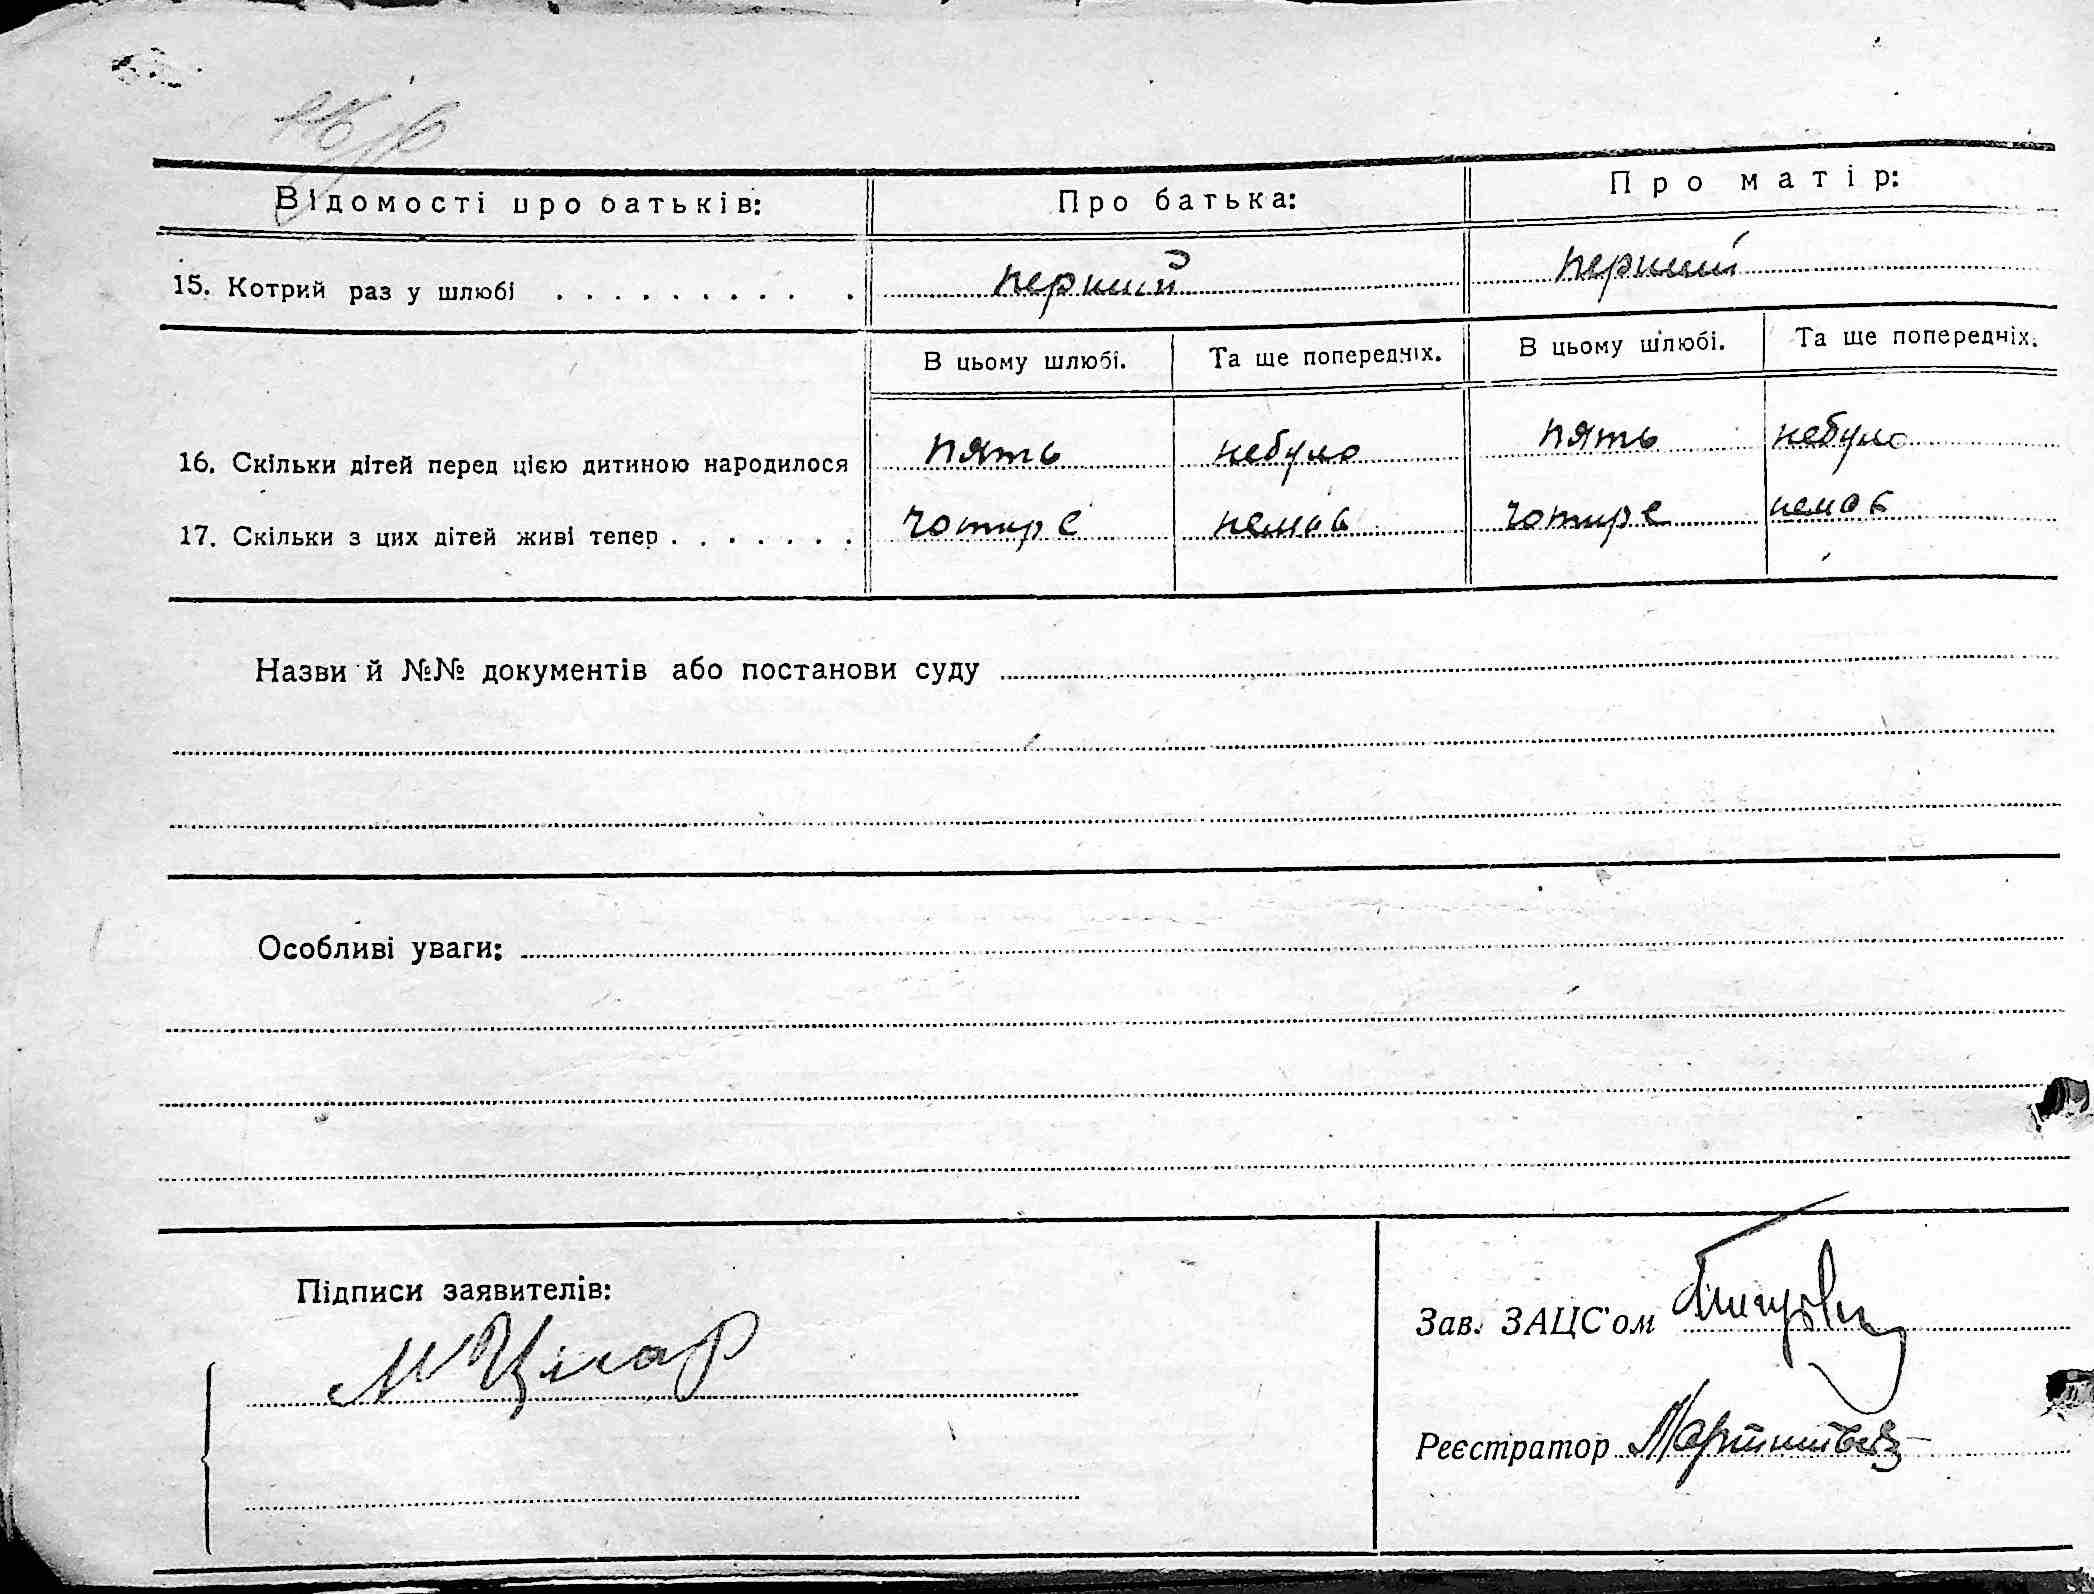 Відомості про батьків: Про батька: Про матір:
15. Котрий раз у шлюбі . . . . . . . . . . перший перший
В цьому шлюбі. Та ще попередніх. В цьому шлюбі. Та ще попередніх.
16. Скільки дітей перед цією дитиною народилося пять небуло пять небуло
17. Скільки з цих дітей живі тепер . . . . . . . чотире немає чотире немає
Назви й №№ документів або постанови суду
Особливі уваги:
Підписи заявителів:
Зав. ЗАЦС'ом
Реєстратор